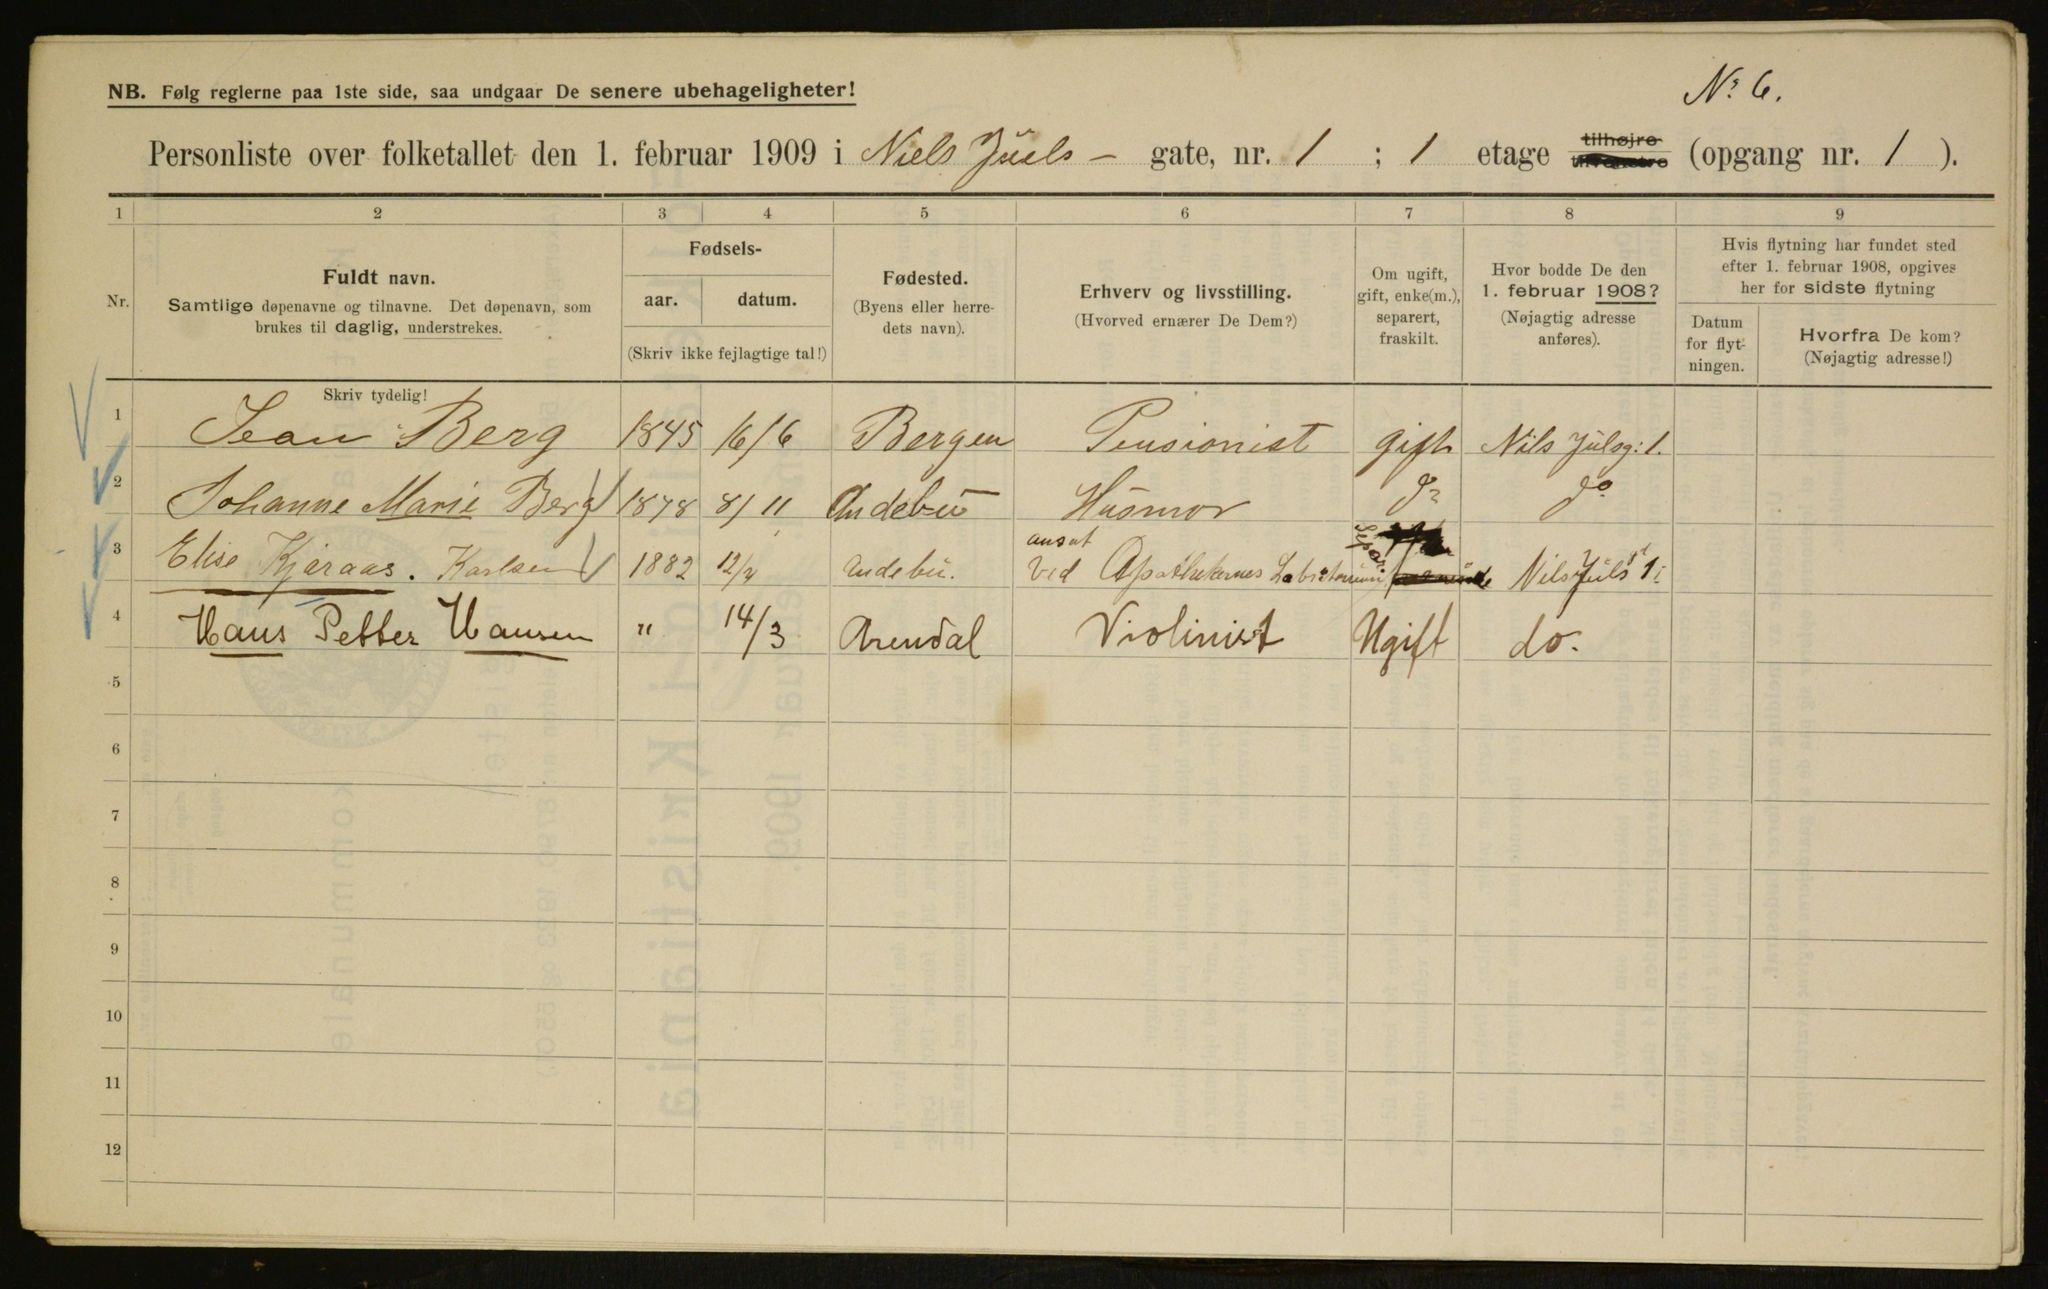 No 6.
NB. Følg reglerne paa 1ste side, saa undgaar De senere ubehageligheter!
Personliste over folketallet den 1. februar 1909 i Niels Juels - gate, nr. 1 ; 1 etage tilhøjre tilvenstre (opgang nr. 1 ).
1 2 3 4 5 6 7 8 9
Nr.
Fuldt navn.
Samtlige døpenavne og tilnavne. Det døpenavn, som
brukes til daglig, understrekes.
Fødsels-
aar. datum.
(Skriv ikke fejlagtige tal!)
Fødested.
(Byens eller herre-
dets navn).
Erhverv og livsstilling.
(Hvorved ernærer De Dem?)
Om ugift,
gift, enke(m.),
separert,
fraskilt.
Hvor bodde De den
1. februar 1908?
(Nøjagtig adresse
anføres).
Hvis flytning har fundet sted
efter 1. februar 1908, opgives
her for sidste flytning
Datum
for flyt-
ningen.
Hvorfra De kom?
(Nøjagtig adresse!)
Skriv tydelig!
1 Jean Berg 1845 16/6 Bergen Pensionist gift Nils Julsg: 1.
2 Johanne Marie Berg 1878 8/11 Andebu Husmor Do Do
3 Elise Kjæraas. Karlsen 1882 12/2 Andebu. ansat
ved Apothekernes Laboratorium Sepor Nils Juls 1
4 Hans Petter Hansen " 14/3 Arendal Violinist Ugift do.
5
6
7
8
9
10
11
12